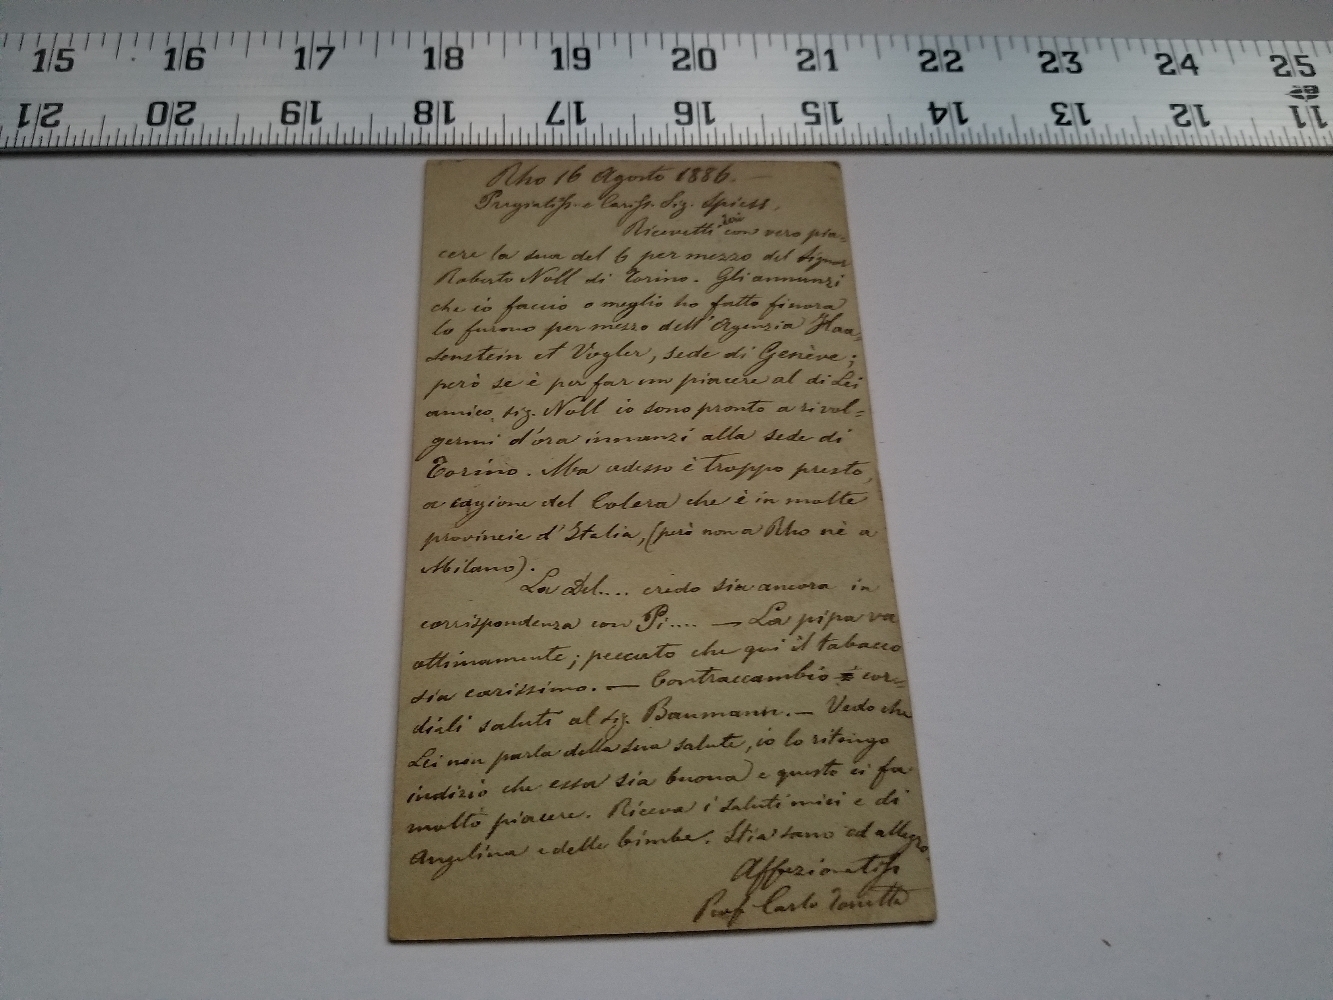 15 16 17 18 19 20 21 22 23 24 25
21 20 19 18 17 16 15 14 13 12 11
Rho 16 Agosto 1886. —
Pregiatiss. e Cariss. Sig. Spiess,
Ricevetti con vero pia=
cere la sua del 6 per mezzo del Signor
Roberto Noll di Torino. Gli annunzi
che io faccio o meglio ho fatto finora
lo furono per mezzo dell'Agenzia Haa=
senstein et Vogler, sede di Genève;
però se è per far un piacere al di Lei
amico sig. Noll io sono pronto a rivol=
germi d'ora innanzi alla sede di
Torino. Ma adesso è troppo presto,
a cagione del Colera che è in molte
provincie d'Italia, (però non a Rho nè a
Milano).
La Del.... credo sia ancora in
corrispondenza con Pi.... — La pipa va
ottimamente; peccato che qui il tabacco
sia carissimo. — Contraccambio i cor=
diali saluti al Sig. Baumann. — Vedo che
Lei non parla della sua salute, io lo ritengo
indizio che essa sia buona e questo ci fa
molto piacere. Riceva i saluti miei e di
Angelina e delle bimbe. Stia sano ed allegro.
Affezionatiss
Prof Carlo